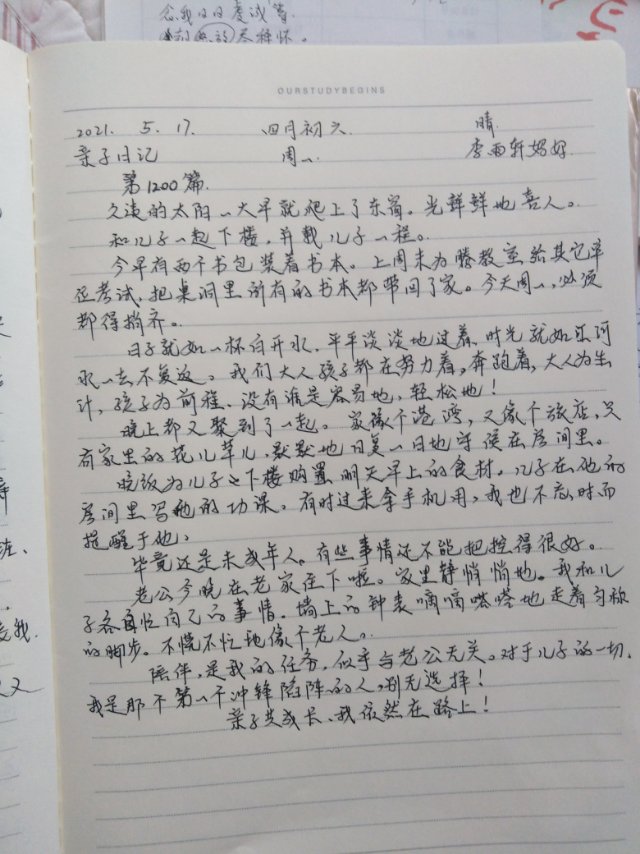 念我日日虔诚篇
尽释怀。
OURSTUDYBEGINS
2021. 5. 17. 四月初六 晴
亲子日记 周一 李雨轩妈妈
第1200篇
久违的太阳一大早就爬上了东窗。光鲜鲜地喜人。
和儿子一起下楼,并载儿子一程。
今早有两个书包装着书本。上周末为腾教室给其它单
位考试,把桌洞里所有的书本都带回了家。今天周一,必须
都得捎齐。
日子就如一杯白开水,平平淡淡地过着,时光就如东河
水一去不复返。我们大人孩子都在努力着,奔跑着,大人为生
计,孩子为前程,没有谁是容易地,轻松地!
晚上都又聚到了一起。家像个港湾,又像个旅店,只
有家里的花儿草儿,默默地日复一日地守侯在房间里。
晚饭为儿子又下楼购置明天早上的食材。儿子在他的
房间里写他的功课。有时过来拿手机用,我也不忘时而
提醒于他。
毕竟还是未成年人。有些事情还不能把控得很好。
老公今晚在老家住下啦。家里静悄悄地。我和儿
子各自忙自己的事情。墙上的钟表嘀嘀嗒嗒地走着匀称
的脚步。不慌不忙地像个老人。
陪伴,是我的任务,似乎与老公无关。对于儿子的一切,
我是那个第一个冲锋陷阵的人,别无选择!
亲子共成长,我依然在路上!